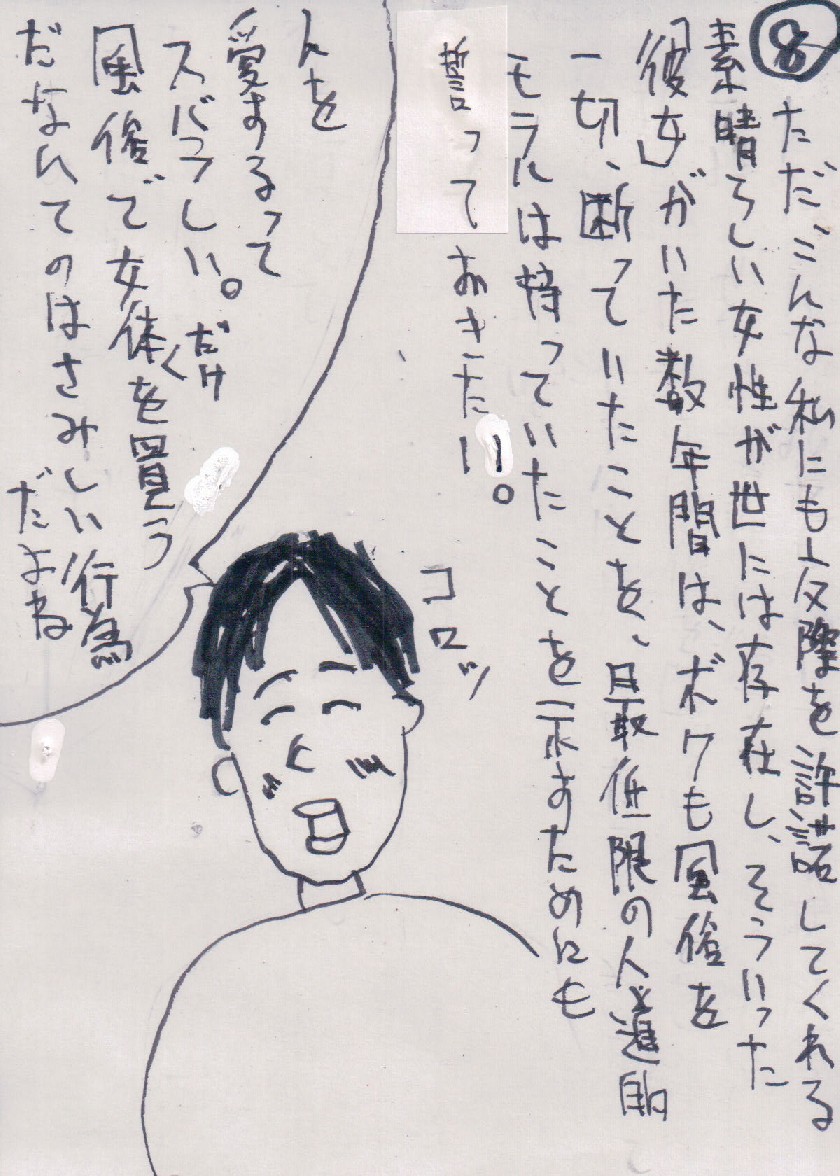 ⑧
ただ、こんな私にも交際を許諾してくれる
素晴らしい女性が世には存在し、そういった
「彼女」がいた数年間は、ボクも風俗を
一切、断っていたことを、最低限の人道的
モラルは持っていたことを示すためにも
誓っておきたい。
コロッ
人を
愛するって
スバラしい。
風俗で女体を買う
だけ
だなんてのはさみしい行為
だよね